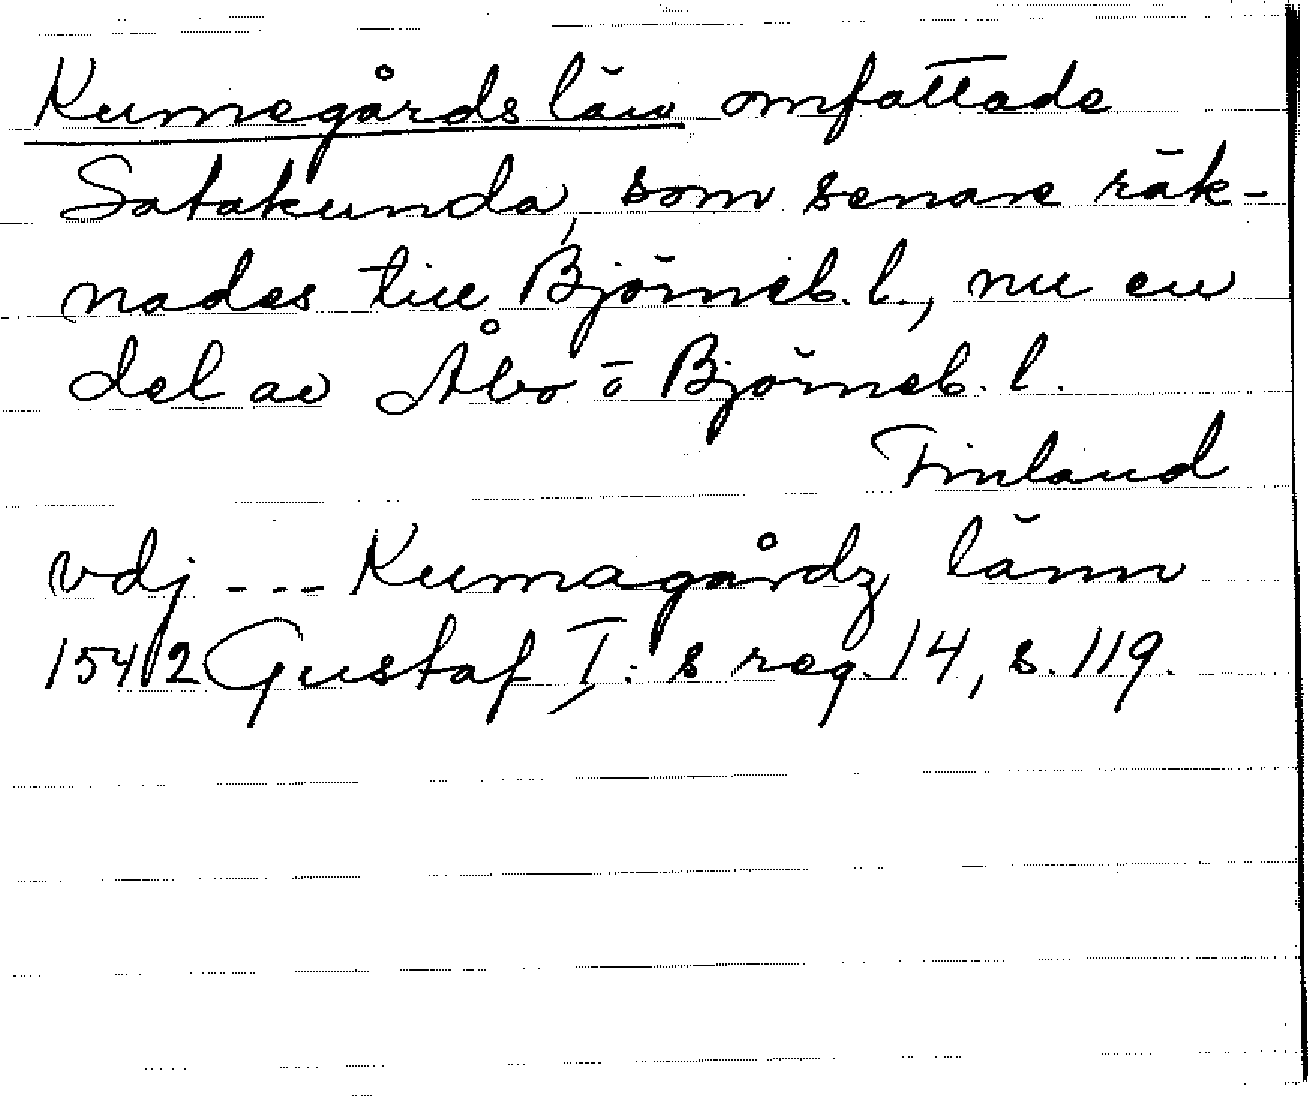 Kumegårds län omfattade
Satakunda, som senare räk-
nades till Björneb. l., nu en
del av Åbo o Björneb. l.
Finland
vdj --- Kumagårdz länn
1542 Gustaf I:s reg. 14, s. 119.